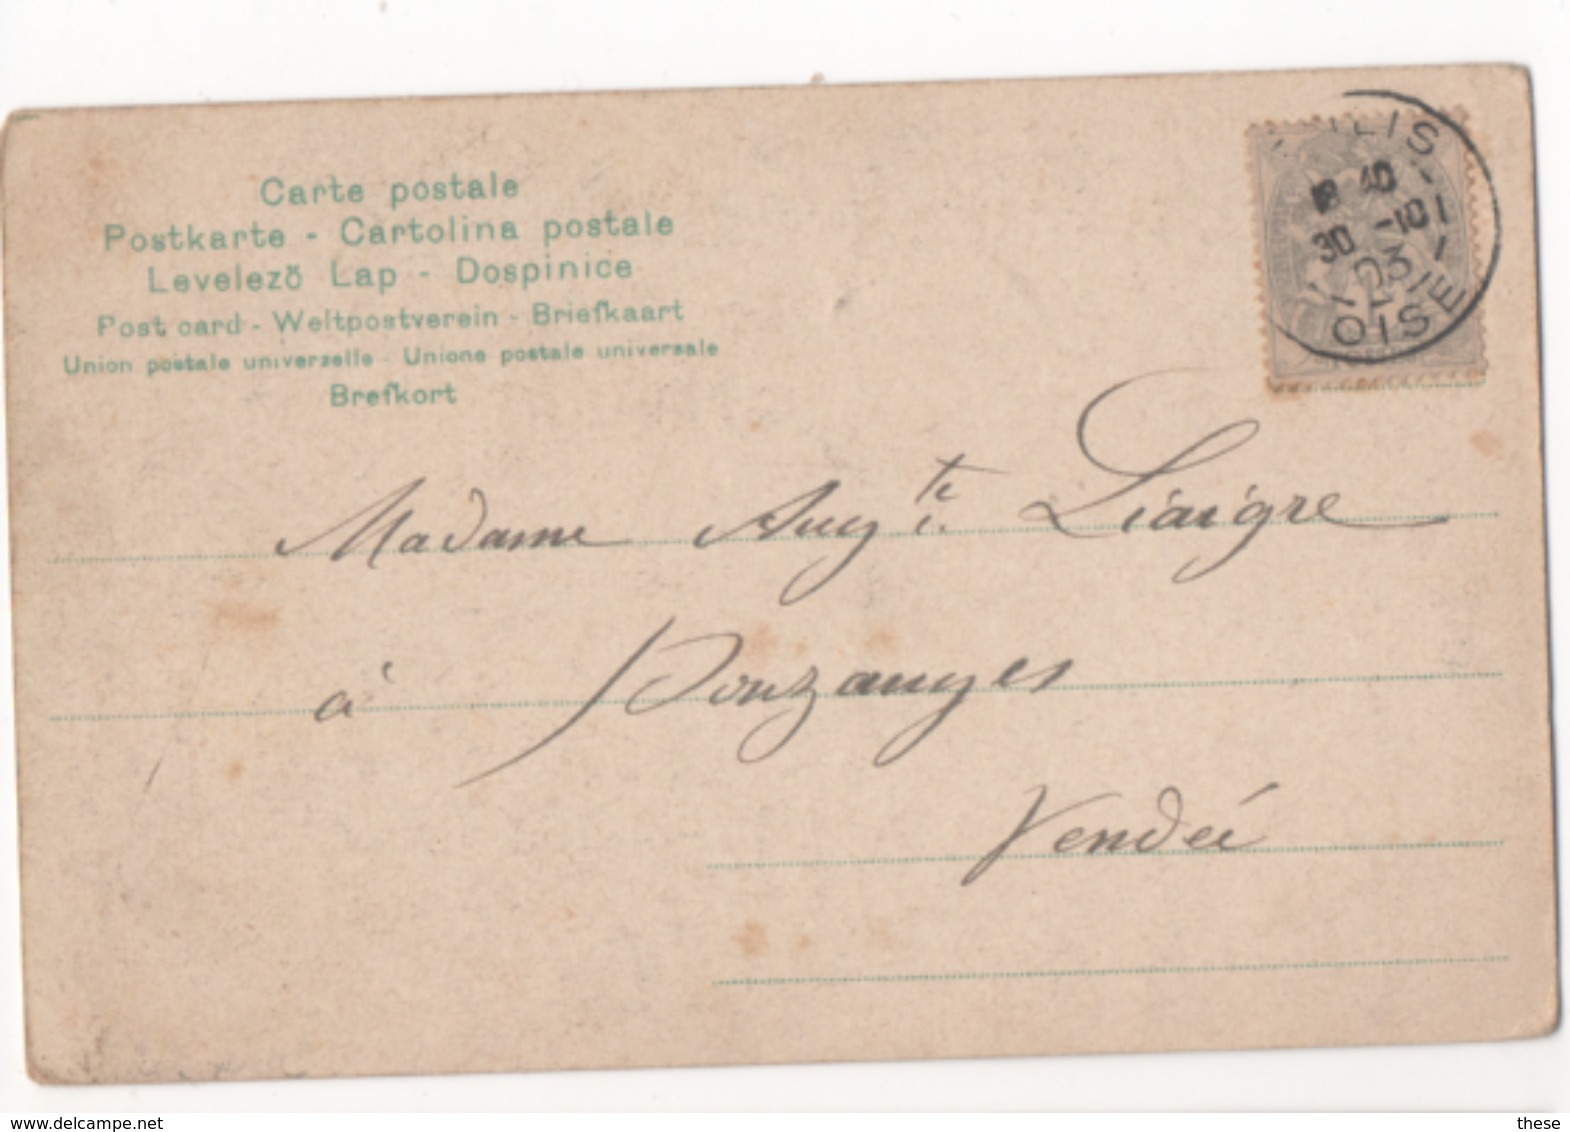 Carte postale
Postkarte - Cartolina postale
Levelező Lap - Dospinice
Post card - Weltpostverein - Briefkaart
Union postale universelle - Unione postale universale
Brefkort
LIS
18 40
30 -10
03
OISE
Madame Aug.te Liaigre
à Pouzauges
Vendée
www.delcampe.net
these